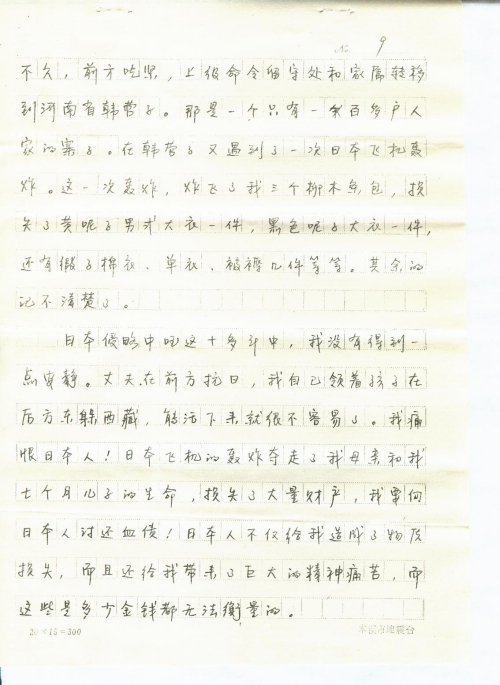 No. 9
不久，前方吃紧，上级命令留守处和家属转移
到河南省韩营子。那是一个只有一百多户人
家的寨子。在韩营子又遇到了一次日本飞机轰
炸。这一次轰炸，炸飞了我三个柳木条包，损
失了黄呢子男式大衣一件，黑色呢子大衣一件，
还有缎子棉衣、单衣、被褥几件等等。其余的
记不清楚了。
日本侵略中国这十多年中，我没有得到一
点安静。丈夫在前方抗日，我自己领着孩子在
后方东躲西藏，能活下来就很不容易了。我痛
恨日本人！日本飞机的轰炸夺走了我母亲和我
七个月儿子的生命，损失了大量财产，我要向
日本人讨还血债！日本人不仅给我造成了物质
损失，而且还给我带来了巨大的精神痛苦，而
这些是多少金钱都无法衡量的。
20×15=300
本溪市地震台